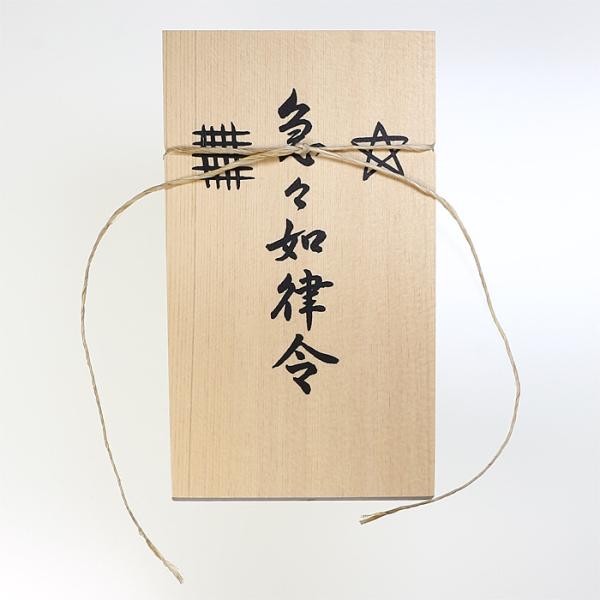 急々如律令